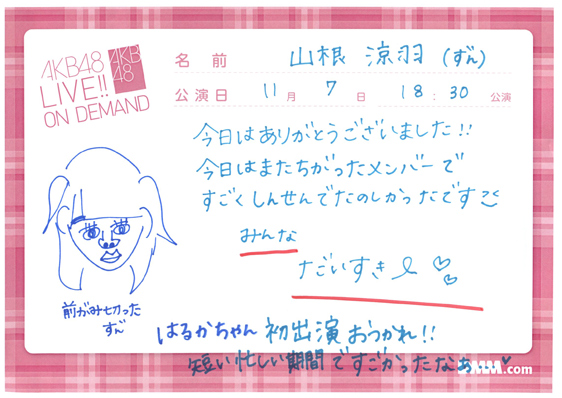 AKB48
LIVE!!
ON DEMAND
AKB
48
名前 山根 涼羽 (ずん)
公演日 11月 7日 18:30 公演
今日はありがとうございました!!
今日はまたちがったメンバーで
すごくしんせんでたのしかったです
みんな
だいすき
前がみ切った
ずん
はるかちゃん 初出演おつかれ!!
短い忙しい期間ですごかったなぁー
DMM.com